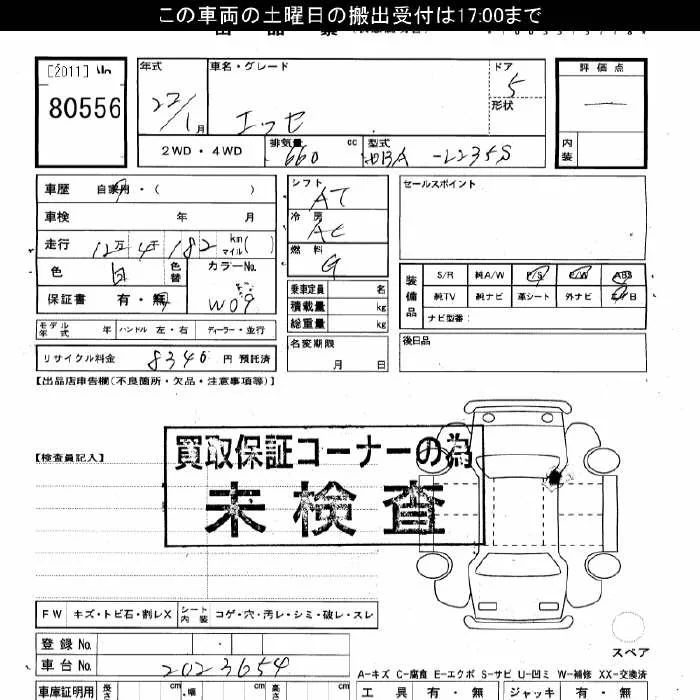 この車両の土曜日の搬出受付は17:00まで
[2011]
80556
年式
22/1月
車名・グレード
エッセ
ドア
5
形状
評価点
内装
2WD・4WD
排気量 660 cc
型式
-L235S
車歴 自家用・( )
車検 年 月
走行 12万 4千 182 km マイル( )
色 白 色替
カラーNo.
W09
保証書 有・無
シフト
AT
冷房
AC
燃料
G
セールスポイント
乗車定員 名
積載量 kg
総重量 kg
装備品
S/R 純A/W P/S P/W ABS
純TV 純ナビ 革シート 外ナビ
ナビ型番:
モデル年式 年 ハンドル 左・右 ディーラー・並行
リサイクル料金 8340 円 預託済
名変期限
月 日
後日品
【出品店申告欄(不良箇所・欠品・注意事項等)】
【検査員記入】
買取保証コーナーの為
未検査
FW キズ・トビ石・割レX シート内装 コゲ・穴・汚レ・シミ・破レ・スレ
登録No.
車台No. 2023654
スペア
A-キズ C-腐食 E-エクボ S-サビ U-凹ミ W-補修 XX-交換済
車庫証明用 長さ cm ・幅 cm 高さ cm
工具 有・無 ジャッキ 有・無